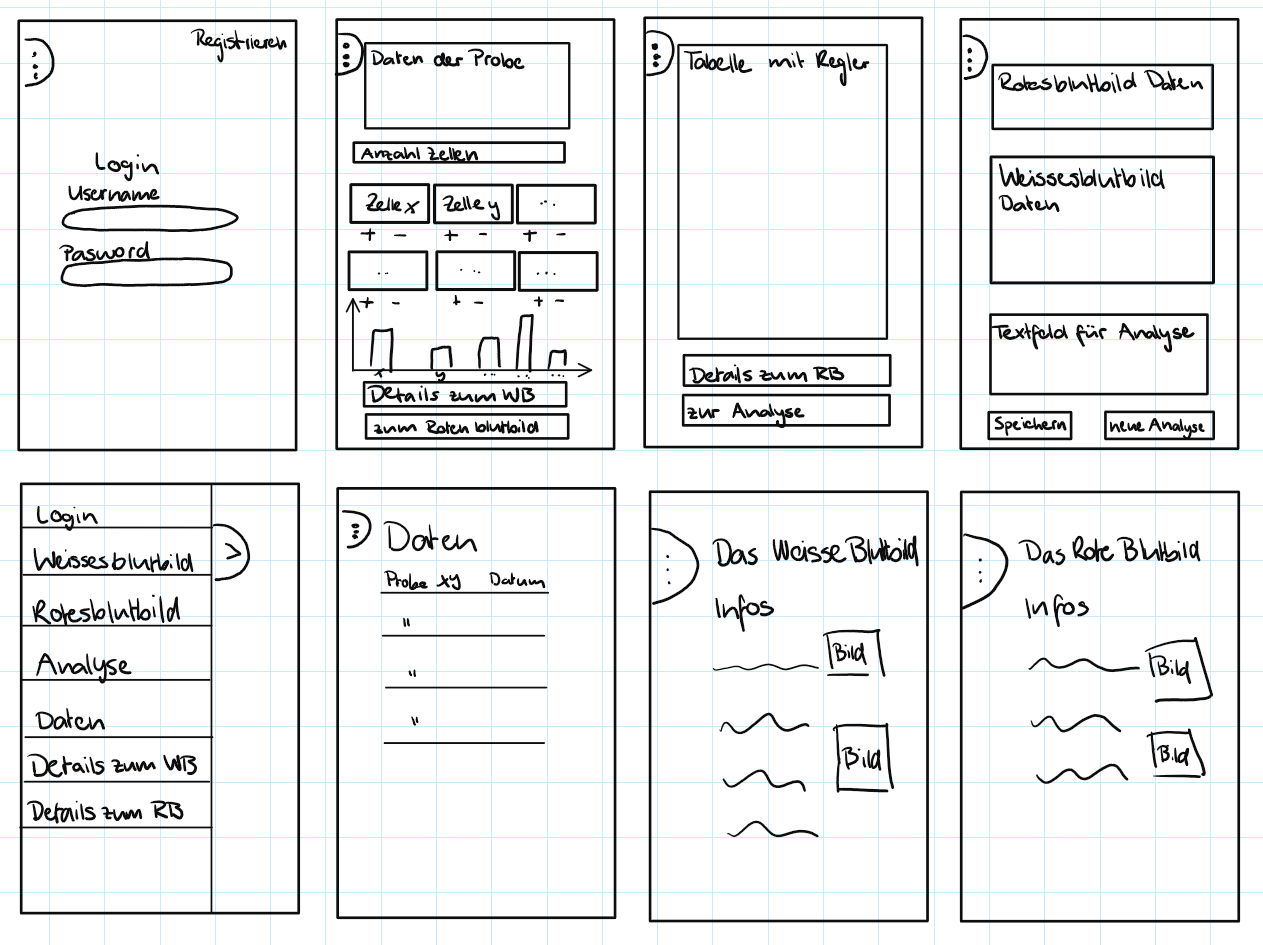 Registrieren
Login
Username
Pasword
Daten der Probe
Anzahl Zellen
Zelle x
Zelle y
...
+ -
+ -
+ -
...
...
...
+ -
+ -
+ -
x
y
...
...
...
Details zum WB
zum Roten blutbild
Tabelle mit Regler
Details zum RB
zur Analyse
Rotesblutbild Daten
Weissesblutbild
Daten
Textfeld für Analyse
Speichern
neue Analyse
Login
Weissesblutbild
Rotesblutbild
Analyse
Daten
Details zum WB
Details zum RB
>
Daten
Probe xy Datum
"
"
"
Das Weisse Blutbild
Infos
Bild
Bild
Das Rote Blutbild
Infos
Bild
Bild